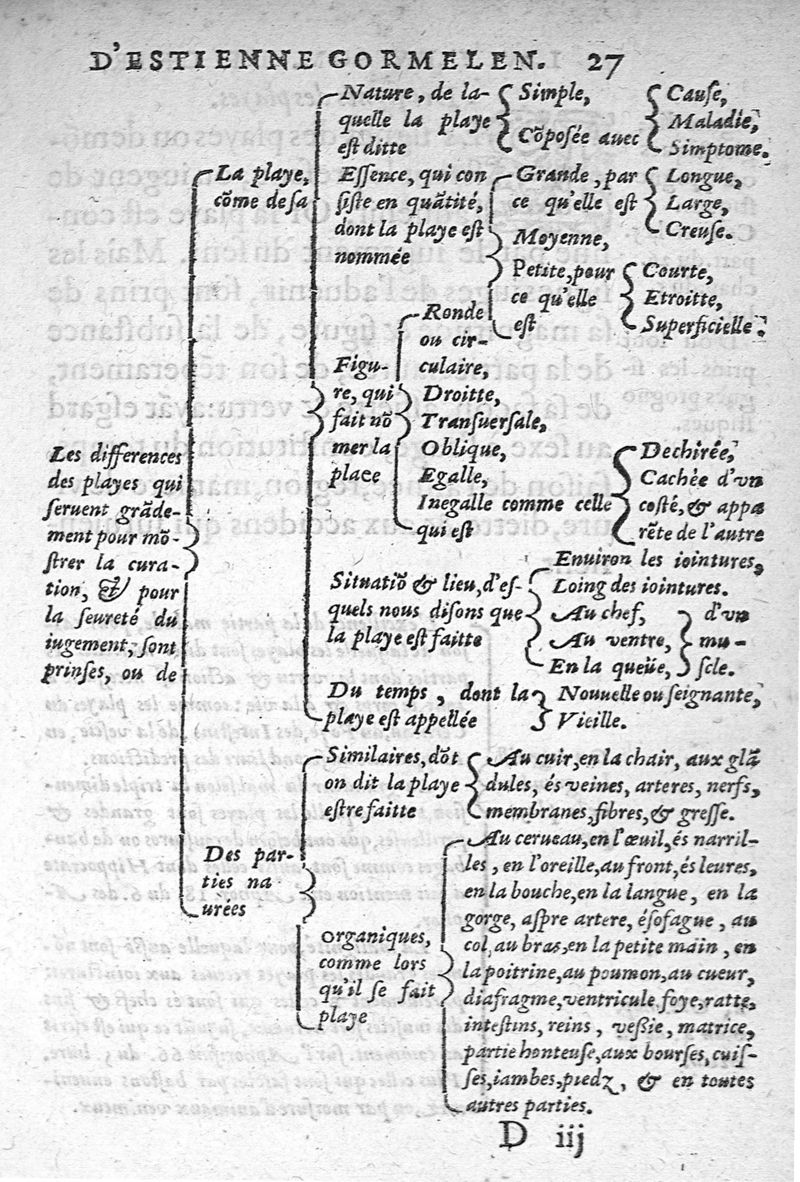 D'ESTIENNE GORMELEN. 27
Les differences
des playes qui
seruent grãde-
ment pour mõ-
strer la cura-
tion, & pour
la seureté du
iugement, sont
prinses, ou de
La playe,
cõme de sa
Nature, de la-
quelle la playe
est ditte
Simple,
Cõposée auec
Cause,
Maladie,
Simptome.
Essence, qui con
siste en quãtité,
dont la playe est
nommée
Grande, par
ce qu'elle est
Longue,
Large,
Creuse.
Moyenne,
Petite, pour
ce qu'elle
est
Courte,
Etroitte,
Superficielle.
Figu-
re, qui
fait nõ
mer la
plaee
Ronde
ou cir-
culaire,
Droitte,
Transuersale,
Oblique,
Egalle,
Inegalle comme celle
qui est
Dechirée,
Cachée d'vn
costé, & appa
rẽte de l'autre
Situatiõ & lieu, d'es-
quels nous disons que
la playe est faitte
Enuiron les iointures,
Loing des iointures.
Au chef,
Au ventre,
En la queüe,
d'vn
mu-
scle.
Du temps, dont la
playe est appellée
Nouuelle ou seignante,
Vieille.
Des par-
ties na
urées
Similaires, dõt
on dit la playe
estre faitte
Au cuir, en la chair, aux glã
dules, és veines, arteres, nerfs,
membranes, fibres, & gresse.
organiques,
comme lors
qu'il se fait
playe
Au cerueau, en l'œuil, és narril-
les, en l'oreille, au front, és leures,
en la bouche, en la langue, en la
gorge, aspre artere, ésofague, au
col, au bras, en la petite main, en
la poitrine, au poumon, au cueur,
diafragme, ventricule, foye, ratte,
intestins, reins, vessie, matrice,
partie honteuse, aux bourses, cuis-
ses, iambes, piedz, & en toutes
autres parties.
D iij